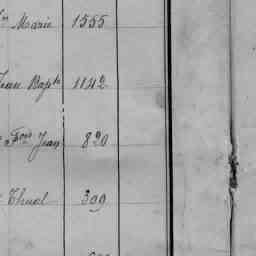 Marie 1555
Jean Bapte 1142
Fois Jean 820
309